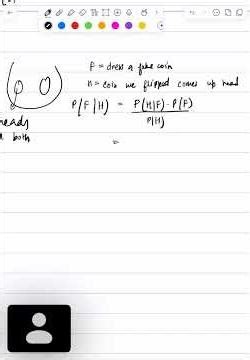 F = draw a fake coin
H = coin we flipped comes up head
P(F|H) = P(H|F) · P(F)
P(H)
=
heads
both